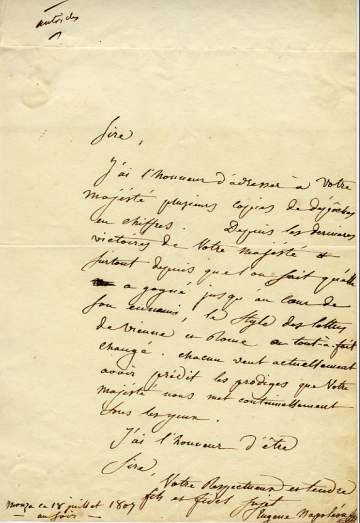 Sire,
J'ai l'honneur d'adresser à Votre
majesté plusieurs copies de dépêches
en chiffres. Depuis les dernieres
victoires de Votre majesté et
surtout depuis que l'on sait qu'elle
a gagné jusqu'au cœur de
son ennemi, le style des lettres
de Vienne en Rome a tout-à-fait
changé. chacun veut actuellement
avoir prédit les prodiges que Votre
majesté nous met continuellement
sous les yeux.
J'ai l'honneur d'être
Sire,
Votre Respectueux et tendre
fils et fidel Sujet
Eugene Napoléon
Monza ce 18 juillet 1807
au soir